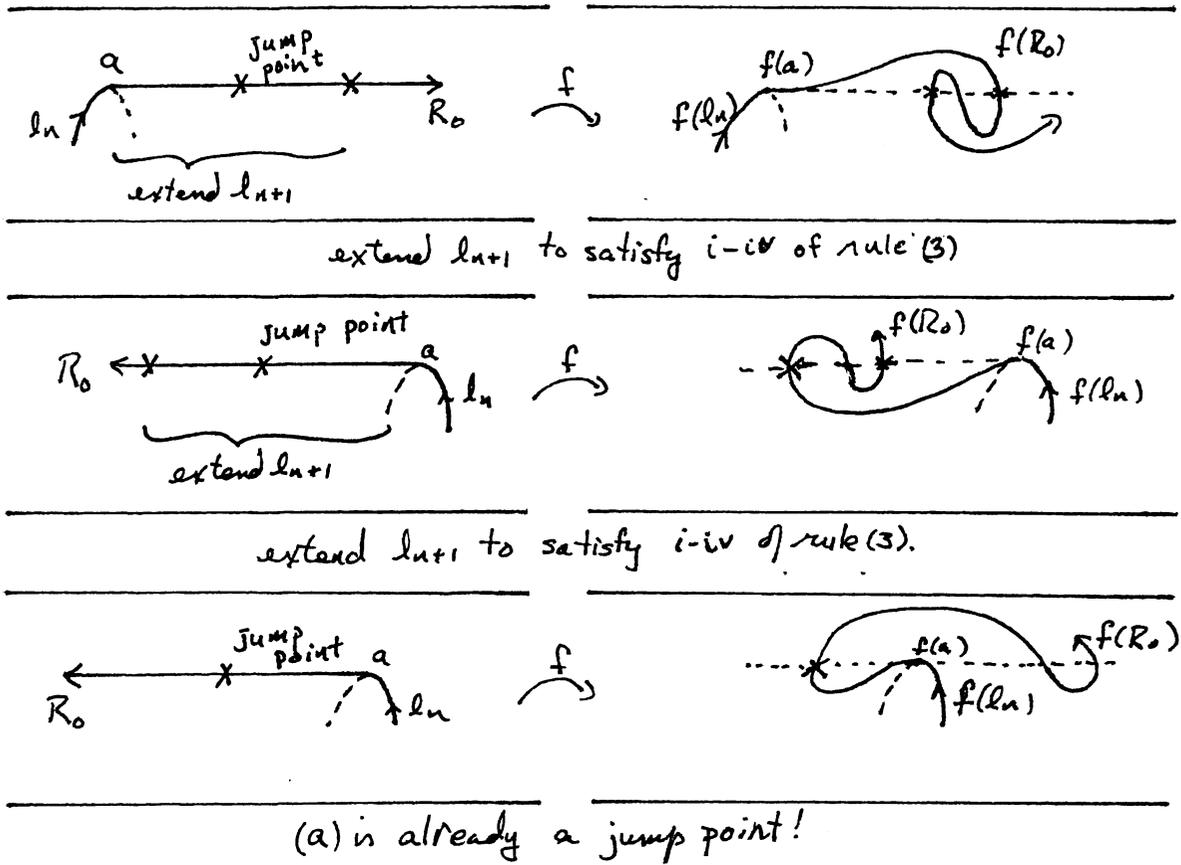 a
jump
point
f
R₀
lₙ
extend lₙ₊₁
f(a)
f(R₀)
f(lₙ)
extend lₙ₊₁ to satisfy i-iv of rule (3)
R₀
jump point
a
f
lₙ
extend lₙ₊₁
f(R₀)
f(a)
f(lₙ)
extend lₙ₊₁ to satisfy i-iv of rule (3).
jump
point
a
f
R₀
lₙ
f(a)
f(R₀)
f(lₙ)
(a) is already a jump point!